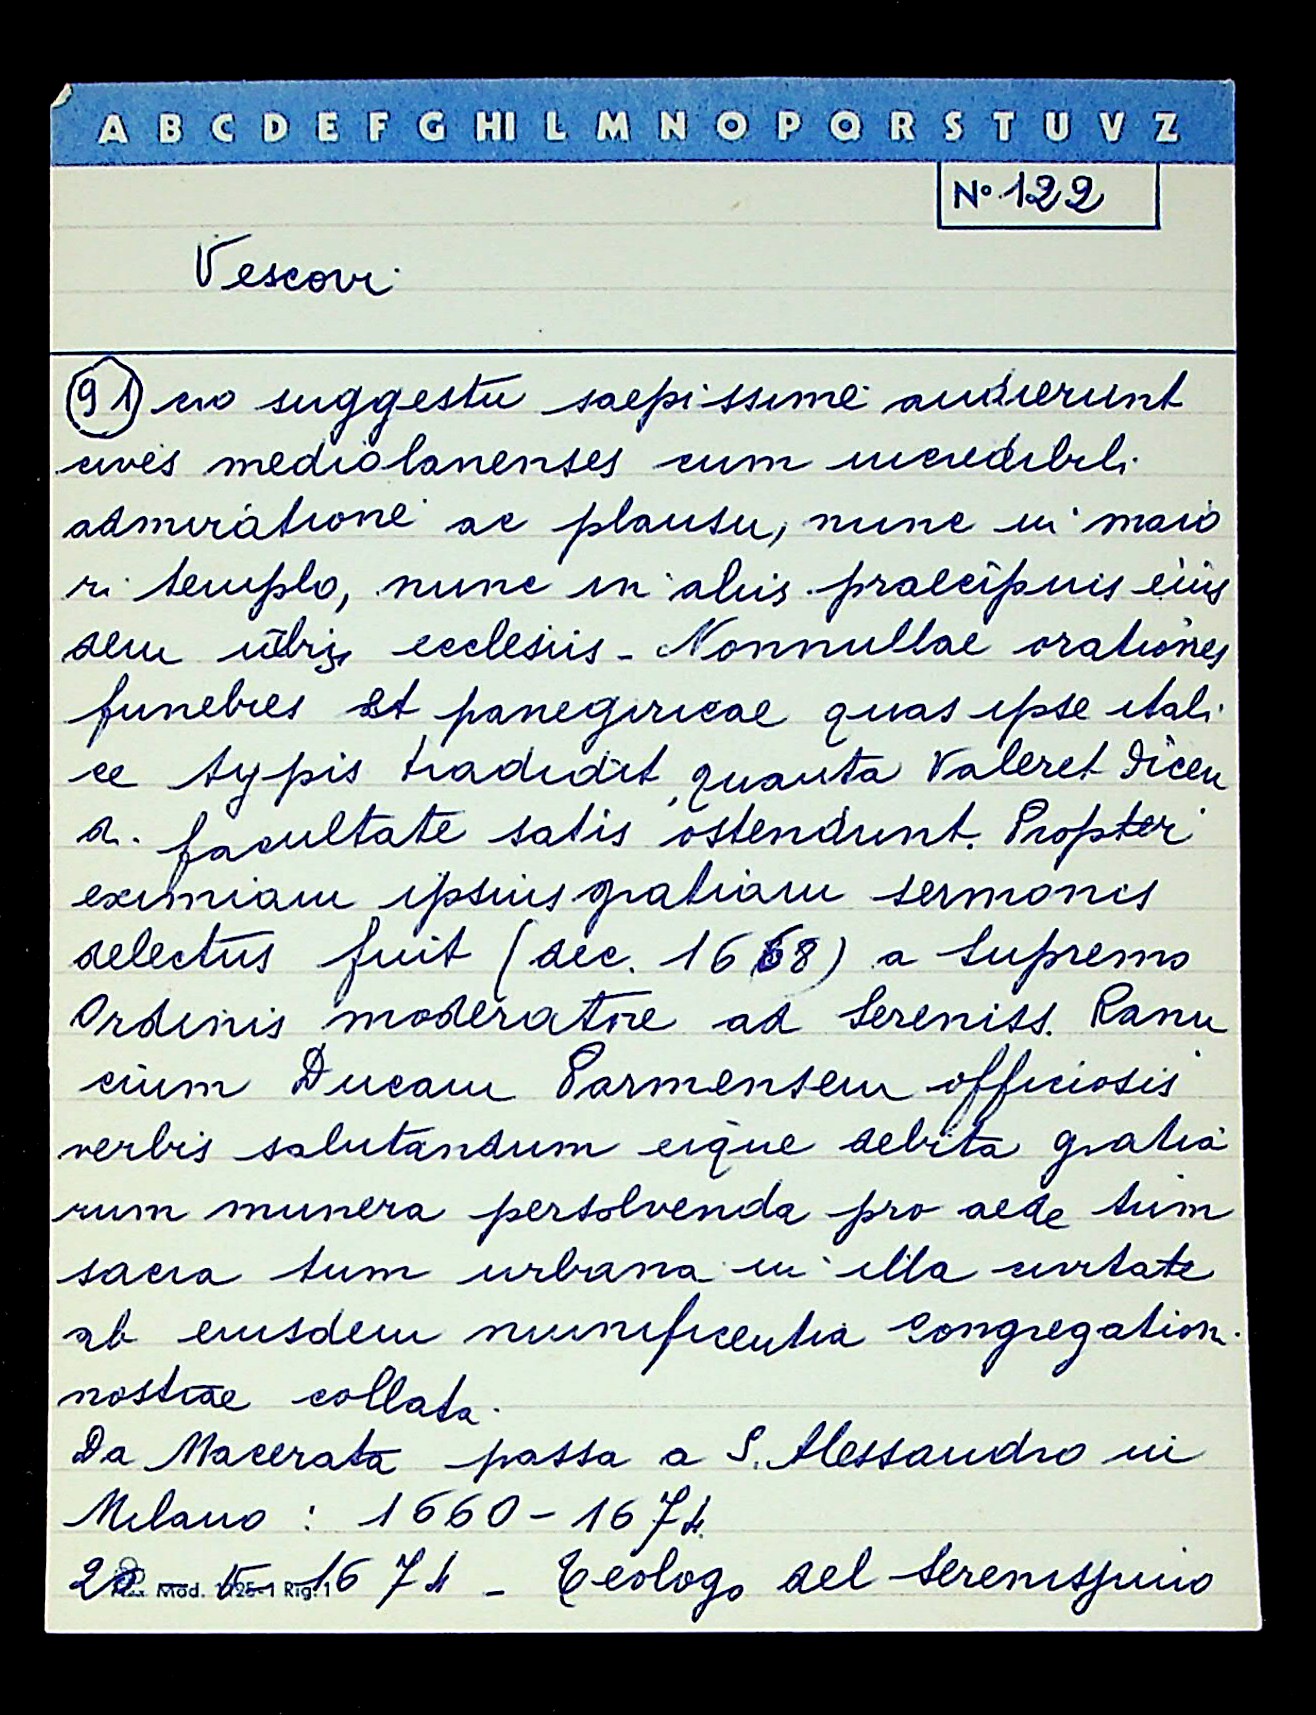 A B C D E F G HI L M N O P Q R S T U V Z
N° 122
Vescovi
91) cro suggestu saepissime audierunt
cives mediolanenses cum incredibili
admiratione ac plausu, nunc in maio
ri templo, nunc in aliis praecipuis eius
dem urbis ecclesiis - Nonnullae orationes
funebres et panegiricae quas ipse itali
ce typis tradidit, quanta valeret dicen
di facultate satis ostendunt. Propter
eximiam ipsius gratiam sermonis
delectus fuit (dec. 1668) a Supremo
Ordinis moderatore ad Sereniss. Ranu
cium Ducam Parmensem officiosis
verbis salutandum eique debita gratia
rum munera persolvenda pro aede tum
sacra tum urbana in illa civitate
ab eiusdem munificentia Congregation.
nostrae collata.
Da Macerata passa a S. Alessandro in
Milano : 1660 - 1674
Mod. 1125-1 Rig. 1
1674 - Teologo del Serenissimo